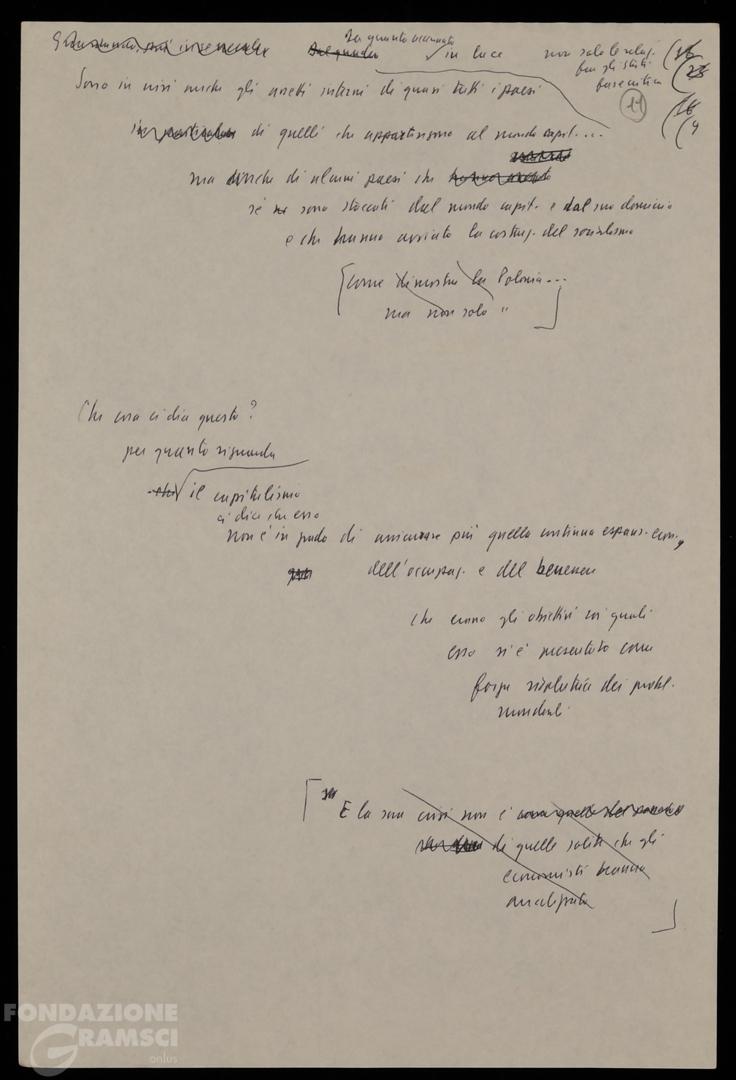 in luce non solo le relaz.
fra gli stati
(11)
Sono in crisi anche gli assetti interni di quasi tutti i paesi
in particolare di quelli che appartengono al mondo capit....
ma anche di alcuni paesi che
si sono staccati dal mondo capit. e dal suo dominio
e che hanno avviato la costruz. del socialismo
[come dimostra la Polonia...
ma non solo "]
Che cosa ci dice questo?
per quanto riguarda
che il capitalismo
ci dice che esso
non è in grado di assicurare più quella continua espans. econ.,
dell'occupaz. e del benessere
che erano gli obiettivi coi quali
esso si è presentato come
forza risolutrice dei probl.
mondiali
[E la sua crisi non è
di quelle solite che gli
economisti hanno
analizzato]
FONDAZIONE
GRAMSCI
onlus